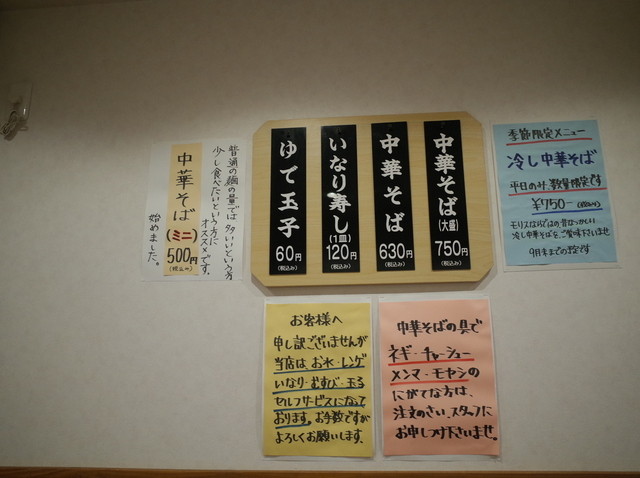 中華そば
(大盛)
750円
(税込み)
中華そば
630円
(税込み)
いなり寿し
(1皿)
120円
(税込み)
ゆで玉子
60円
(税込み)
普通の麺の量では多いという方
少し食べたいという方に
オススメです。
中華そば
(ミニ)
500円
(税込み)
始めました。
季節限定メニュー
冷し中華そば
平日のみ、数量限定です
¥750-(税込み)
モリスならではの昔なつかしい
冷し中華そばをご賞味下さいませ
9月末までの予定です
お客様へ
申し訳ございませんが
当店は、お水・レンゲ
いなり・むすび・玉子
セルフサービスになって
おります。お手数ですが
よろしくお願いします。
中華そばの具で
ネギ・チャーシュー
メンマ・モヤシの
にがてな方は、
注文のさい、スタッフに
お申しつけ下さいませ。